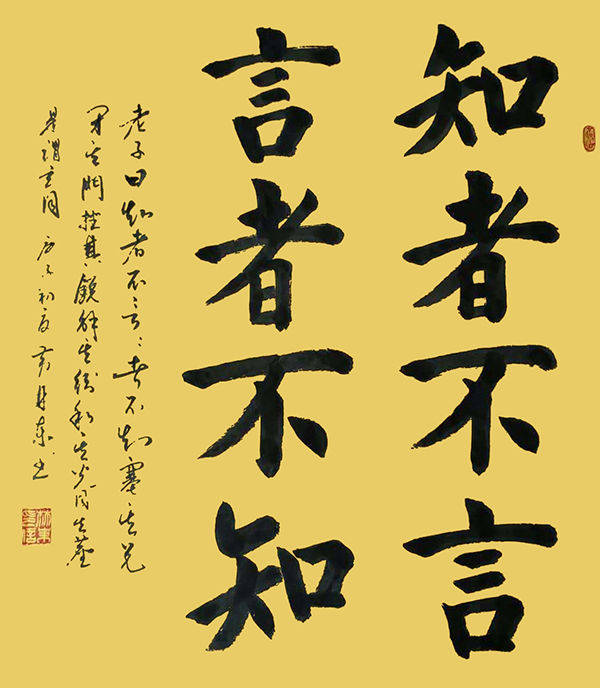 知者不言
言者不知
老子曰知者不言〻者不知塞其兑
閉其門挫其銳解其紛和其光同其塵
是謂玄同 庚子初夏 书